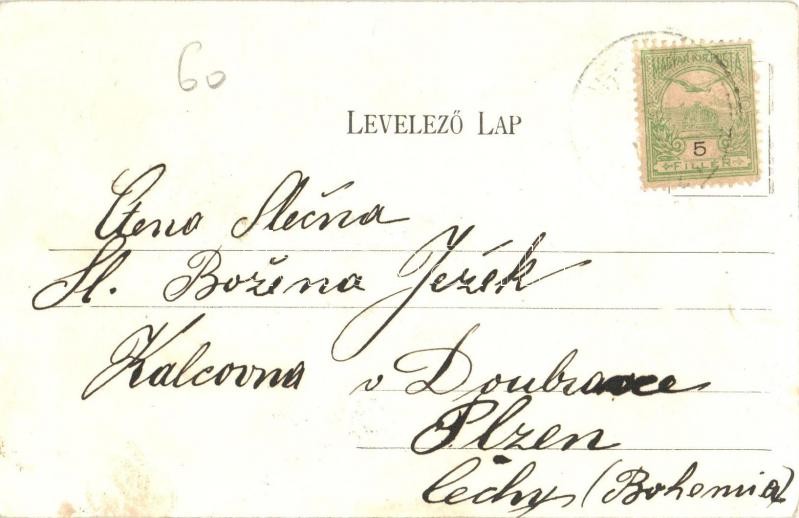 60
MAGYAR KIR. POSTA
5
FILLÉR
LEVELEZŐ LAP
Ctena Slečna
Sl. Božena Ježek
Kalcovna v Doubravce
Plzen
Čechy (Bohemia)